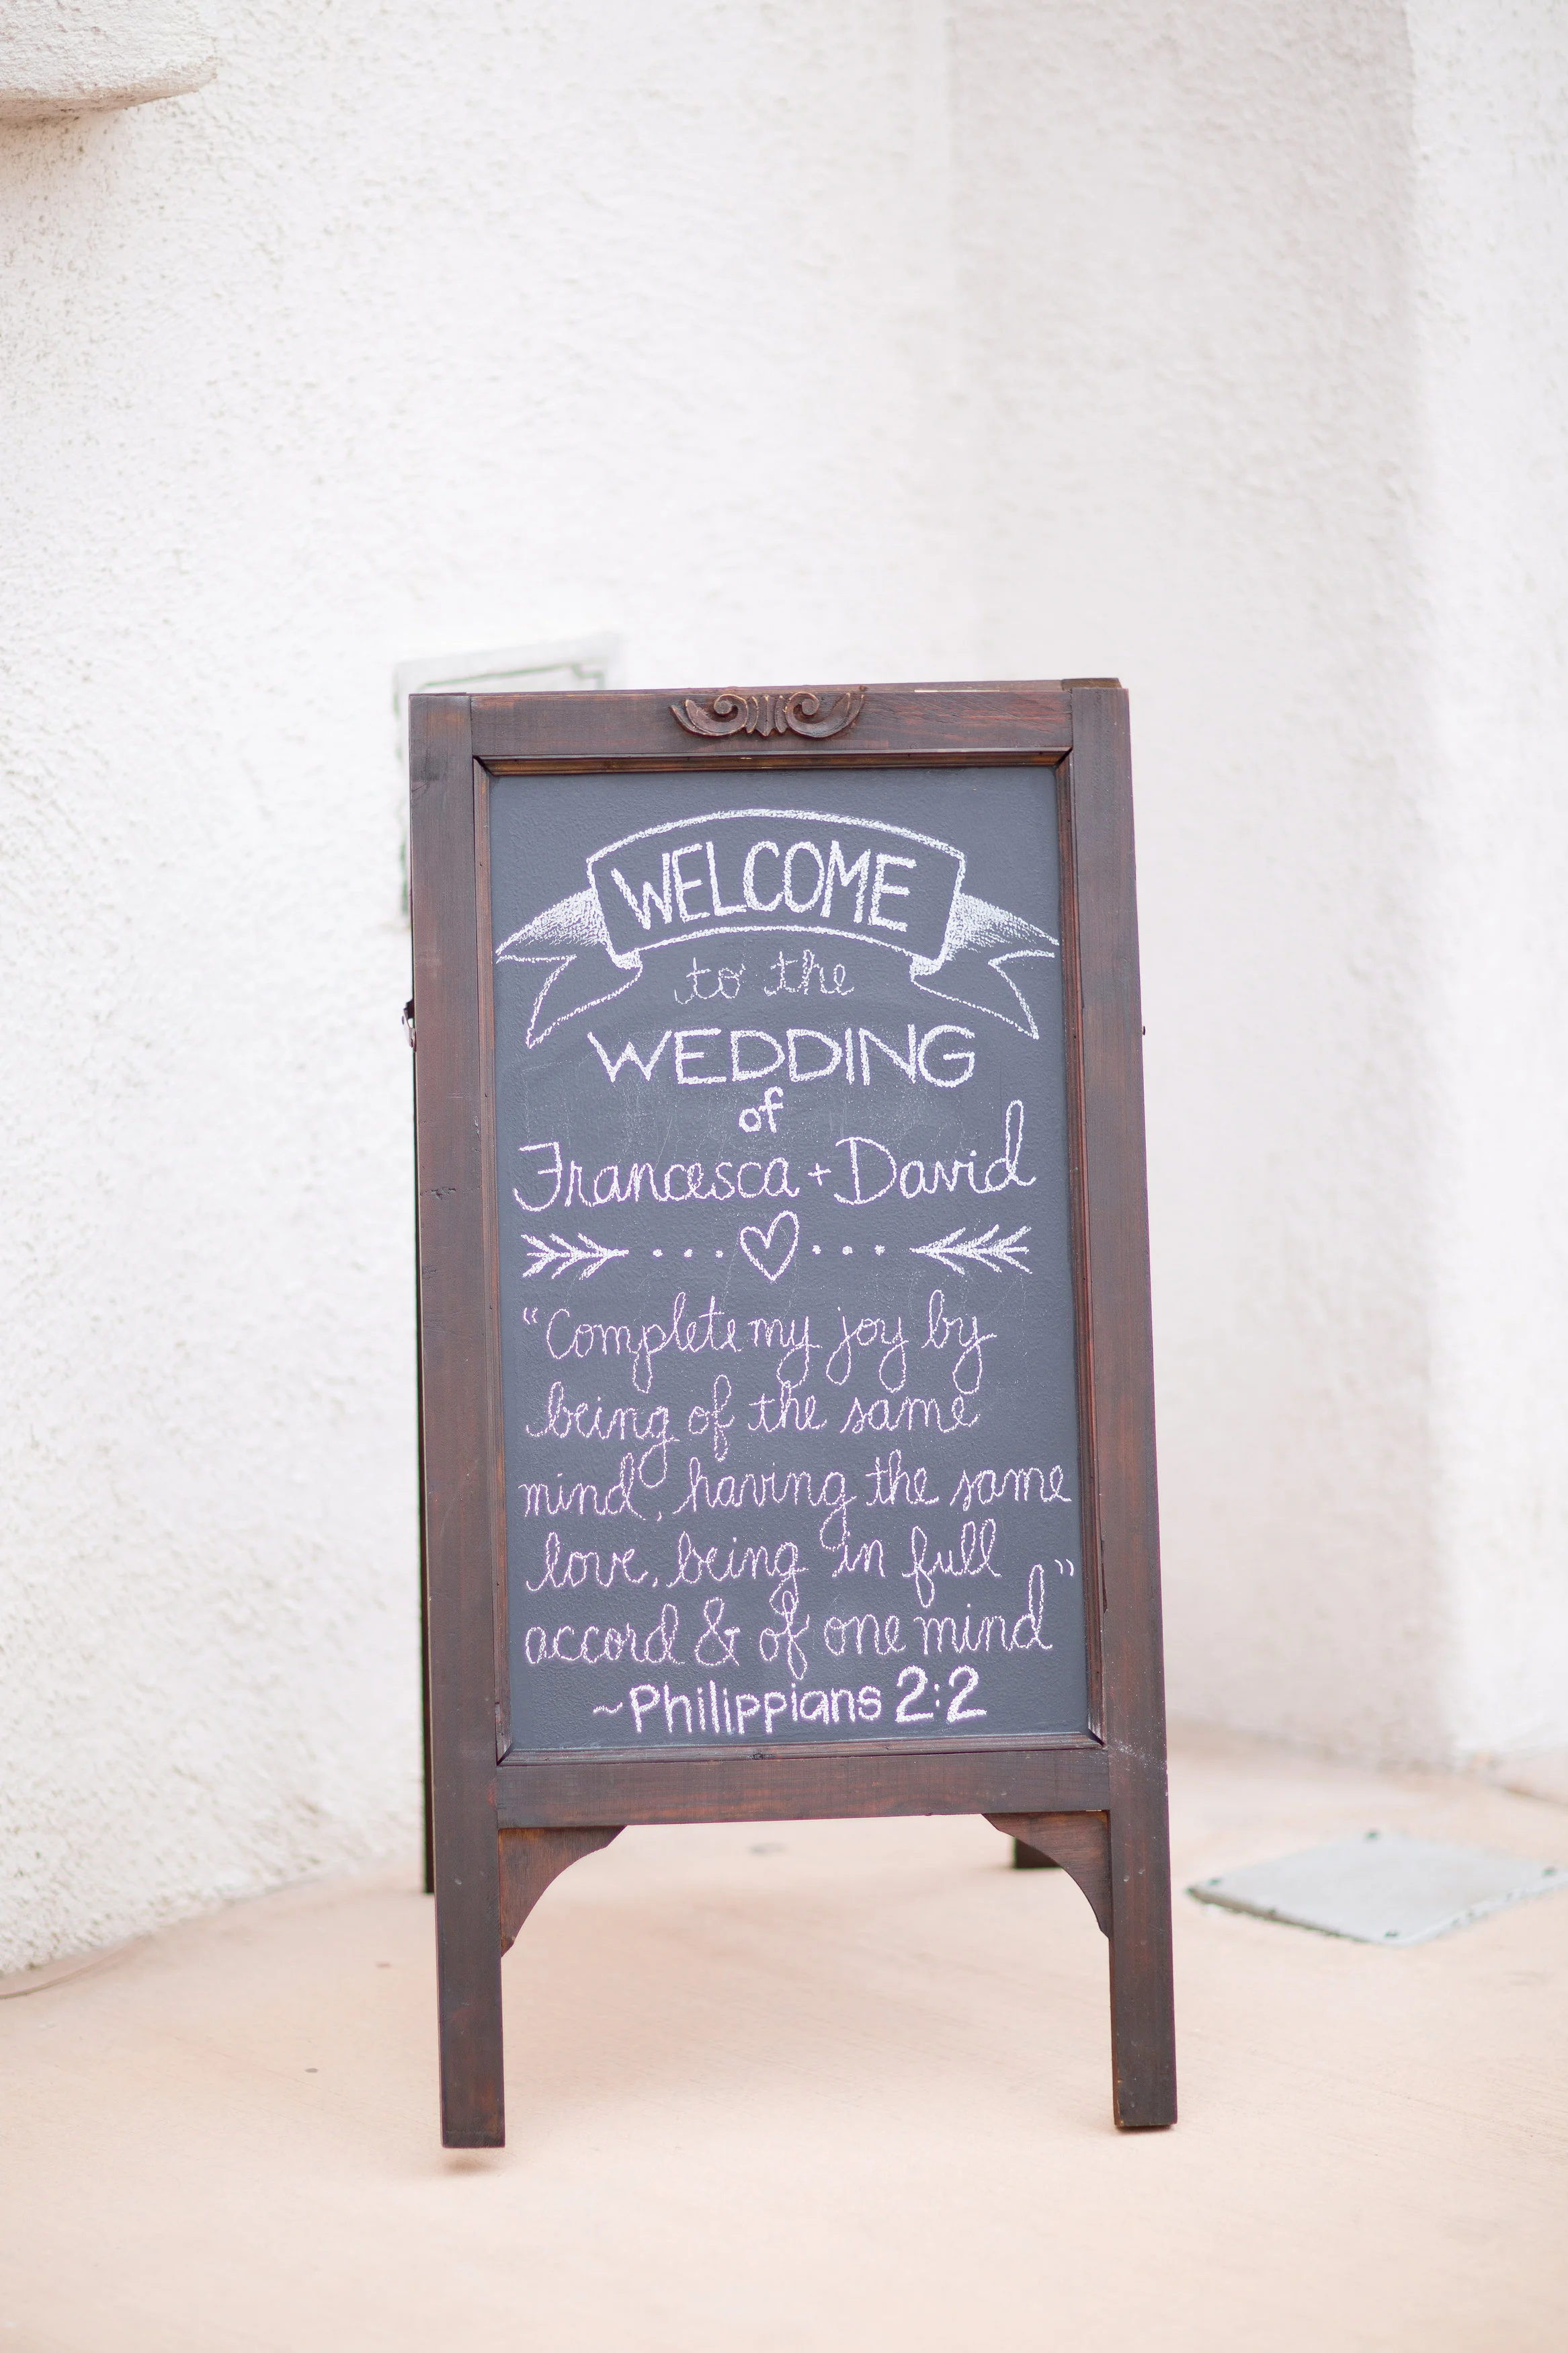 WELCOME
to the
WEDDING
of
Francesca + David
"Complete my joy by
being of the same
mind, having the same
love, being in full
accord & of one mind"
~Philippians 2:2